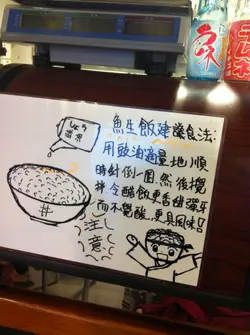 魚生飯建議食法:
用豉油適量地順
時針倒一圈,然後攪
拌令醋飯更香甜彈牙
而不覺酸,更具風味!
しょう
油
注
意